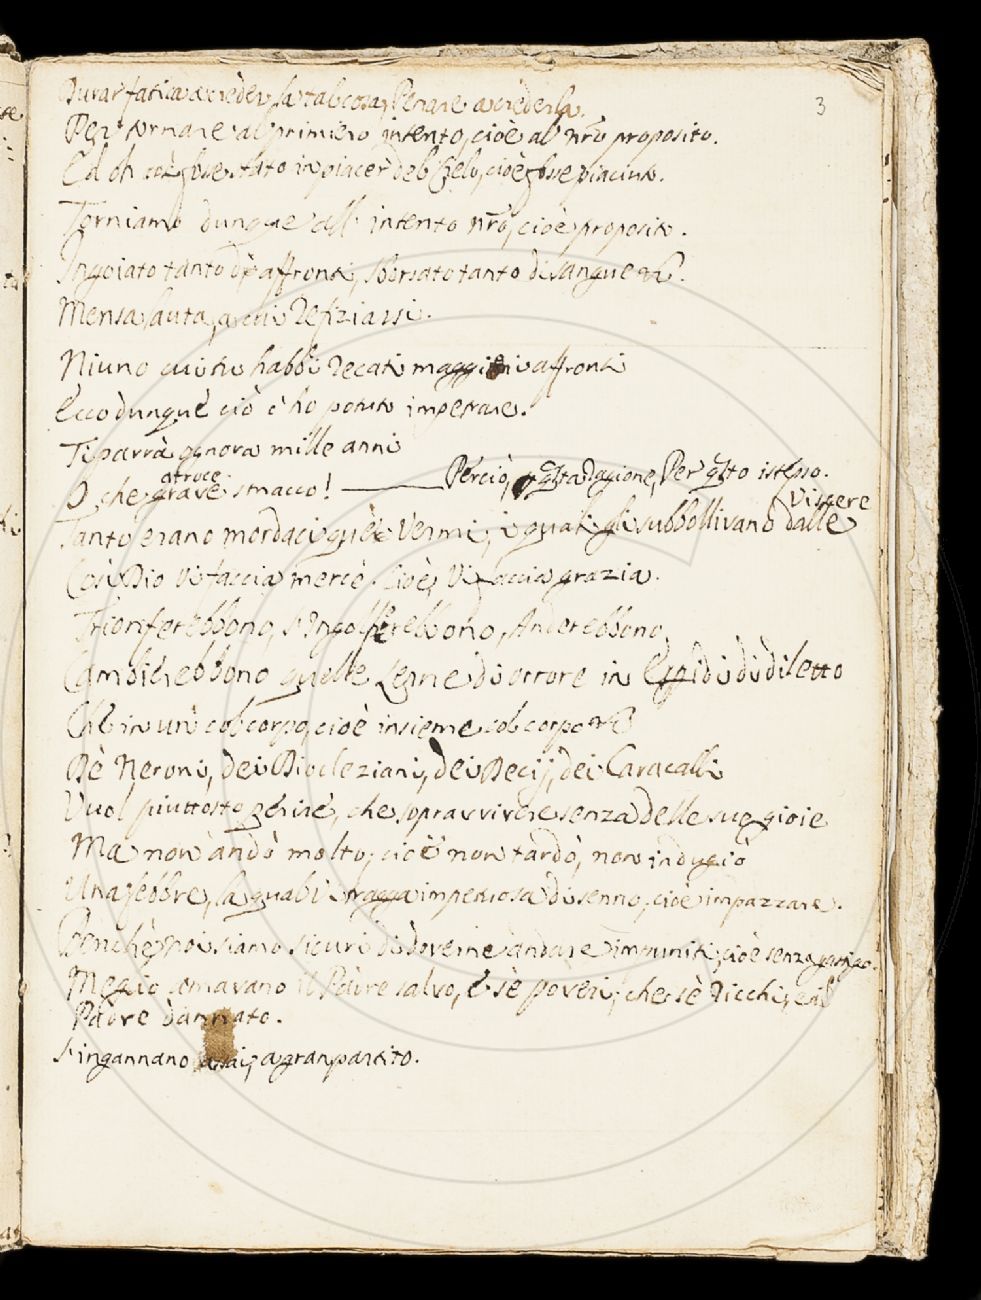 3
Durar fatica a creder la tal cosa, Penare a crederla.
Per tornare al primiero intento, cioè al nrō proposito.
Ed oh così fosse stato in piacer del Cielo, cioè fosse piaciuto.
Torniamo dunque all' intento nrō, cioè proposito.
Ingoiato tanto di affronti, sborsato tanto di sangue
Mensa lauta, a cui refiziarsi.
Niuno cui tu habbi recati maggiori affronti
Ecco dunque ciò c'ho potuto impetrare.
Ti parrà ognora mille anni
O che grave atroce smacco! ——— Perciò, qsta Ragione, Per qsto istesso.
Tanto erano mordaci que' Vermi, i quali gli subbollivano dalle Viscere
Così Dio Vi faccia mercè. Cioè, Vi faccia grazia.
Trionferebbono, s'Ingolferebbono, Anderebbono
Cambierebbono quelle scene di orrore in di diletto
Che in un col corpo, cioè insieme col corpo
Dè Neroni, dei Diocleziani, dei Decij, dei Caracalli
Vuol piuttosto perire, che sopravvivere senza delle sue gioie
Ma non andò molto, cioè non tardò, non indugiò
Una febbre, la qual Vi tragga imperiosa di senno, cioè impazzare.
Benchè noi siamo sicuri di doverne andare impuniti, cioè senza gastigo.
Meglio amavano il Padre salvo, e sè poveri, che sè Ricchi, e il
Padre dannato.
S'ingannano assai, a gran partito.